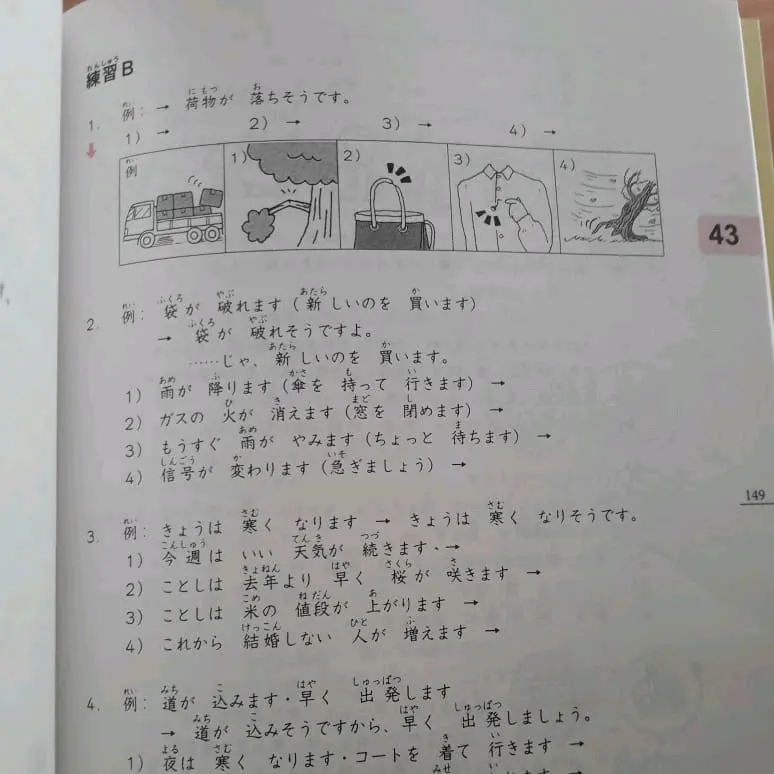 練習B
1. 例：→ 荷物が 落ちそうです。
1) → 2) → 3) → 4) →
例 1) 2) 3) 4)
43
2. 例：袋が 破れます（新しいのを 買います）
→ 袋が 破れそうですよ。
……じゃ、新しいのを 買います。
1) 雨が 降ります（傘を 持って 行きます）→
2) ガスの 火が 消えます（窓を 閉めます）→
3) もうすぐ 雨が やみます（ちょっと 待ちます）→
4) 信号が 変わります（急ぎましょう）→
149
3. 例：きょうは 寒く なります → きょうは 寒く なりそうです。
1) 今週は いい 天気が 続きます・→
2) ことしは 去年より 早く 桜が 咲きます →
3) ことしは 米の 値段が 上がります →
4) これから 結婚しない 人が 増えます →
4. 例：道が 込みます・早く 出発します
→ 道が 込みそうですから、早く 出発しましょう。
1) 夜は 寒く なります・コートを 着て 行きます →